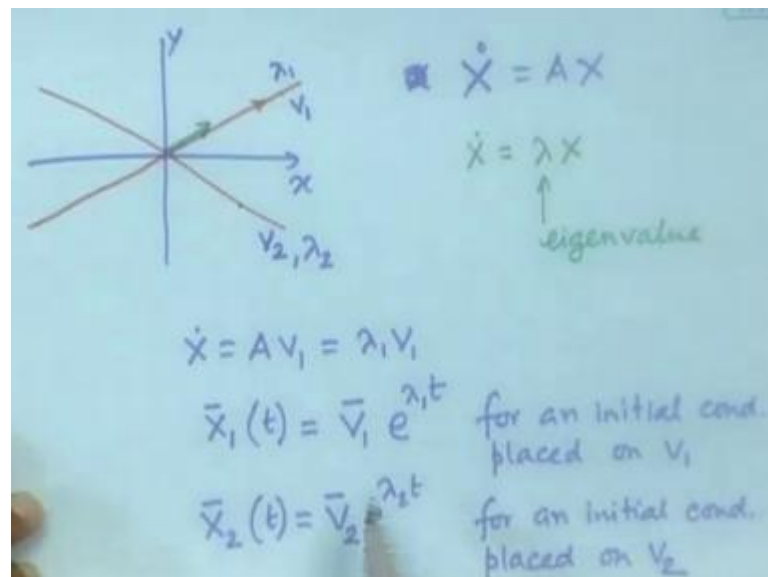 y
λ₁
V₁
x
V₂, λ₂
Ẋ = A X
ẋ = λ X
↑
eigenvalue
ẋ = A V₁ = λ₁ V₁
X̄₁ (t) = V̄₁ e^{λ₁t} for an initial cond.
placed on V₁
X̄₂ (t) = V̄₂ e^{λ₂t} for an initial cond.
placed on V₂